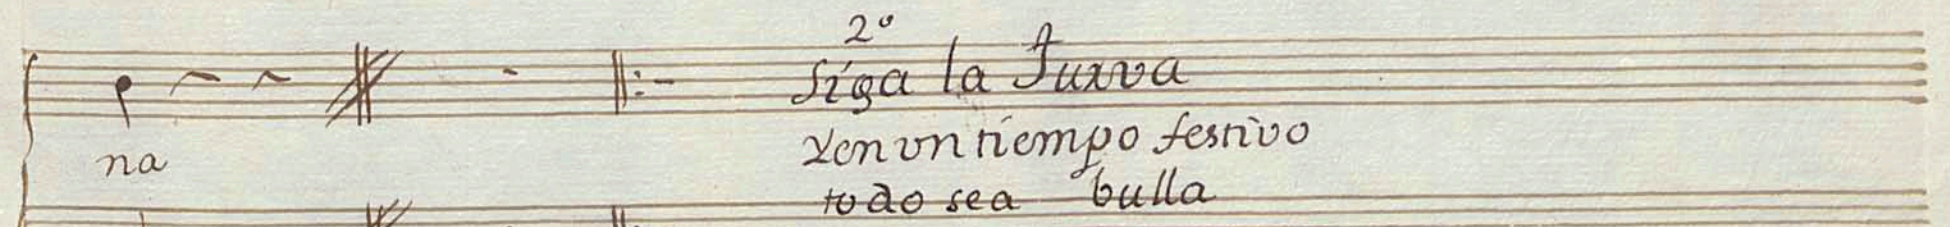 2º
Siga la Turva
na
Yen vn tiempo festivo
todo sea bulla